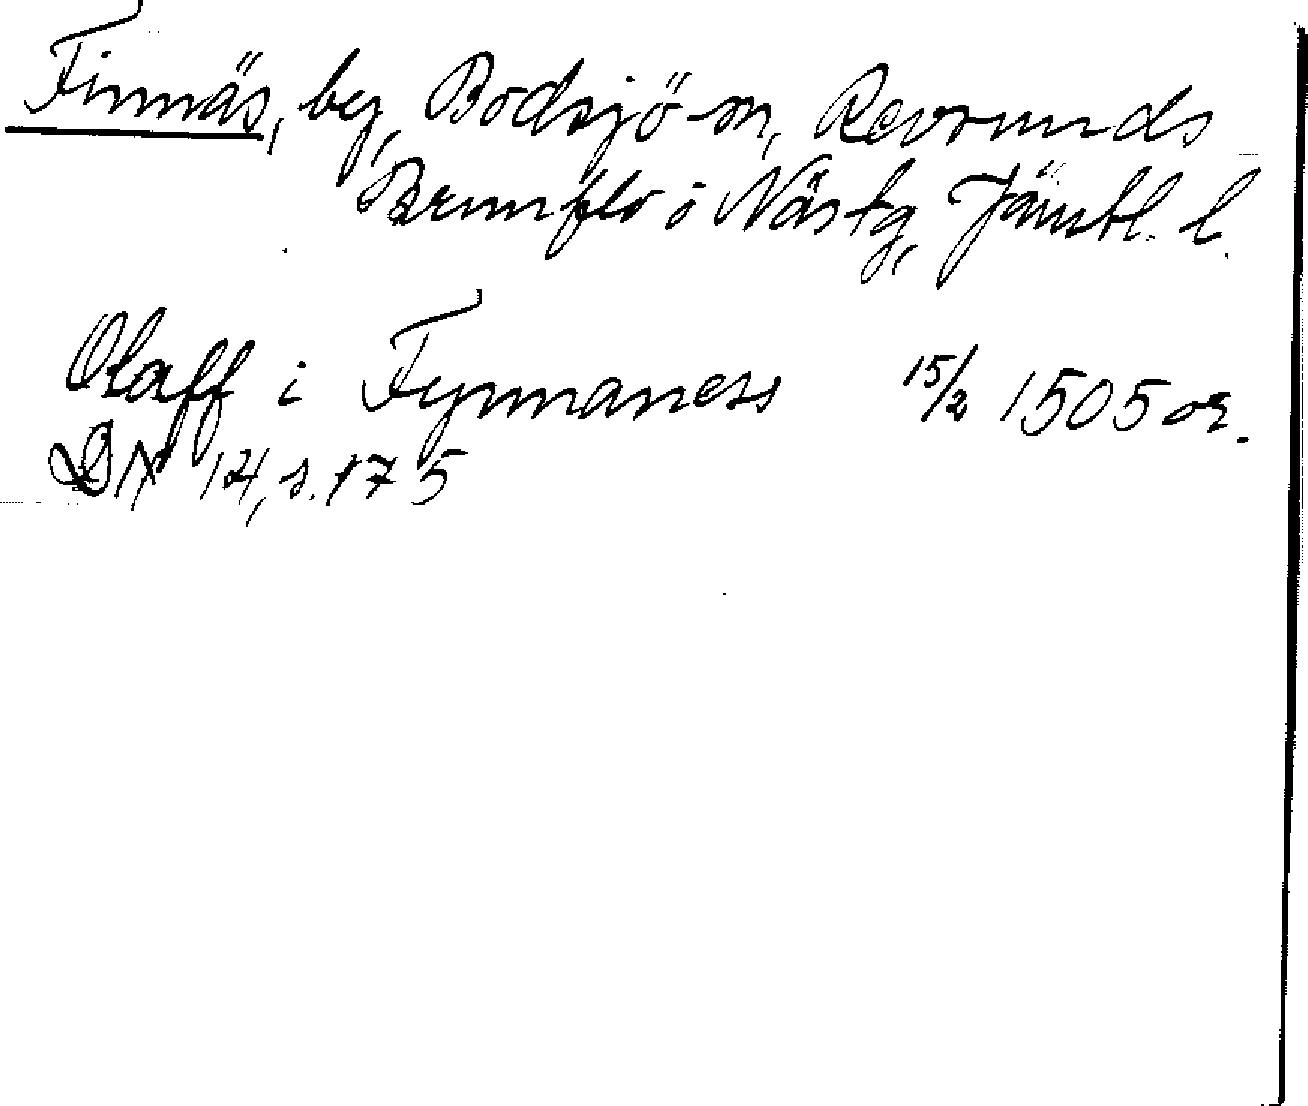 Finnäs, by, Bodsjö sn, Revsunds
Brunflo o Näs tg, Jämtl. l.
Olaff i Fynnaness 15/2 1505 or.
DN 14, s. 175